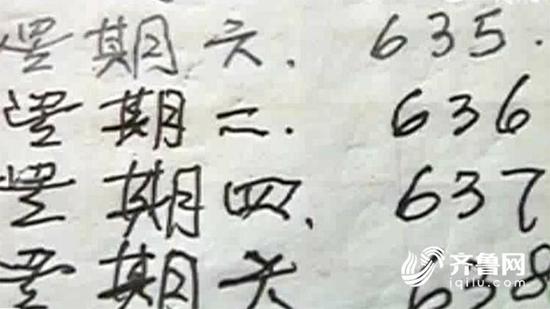 星期六. 635.
星期二. 636
星期四. 637
星期六 638
齐鲁网
iqilu.com